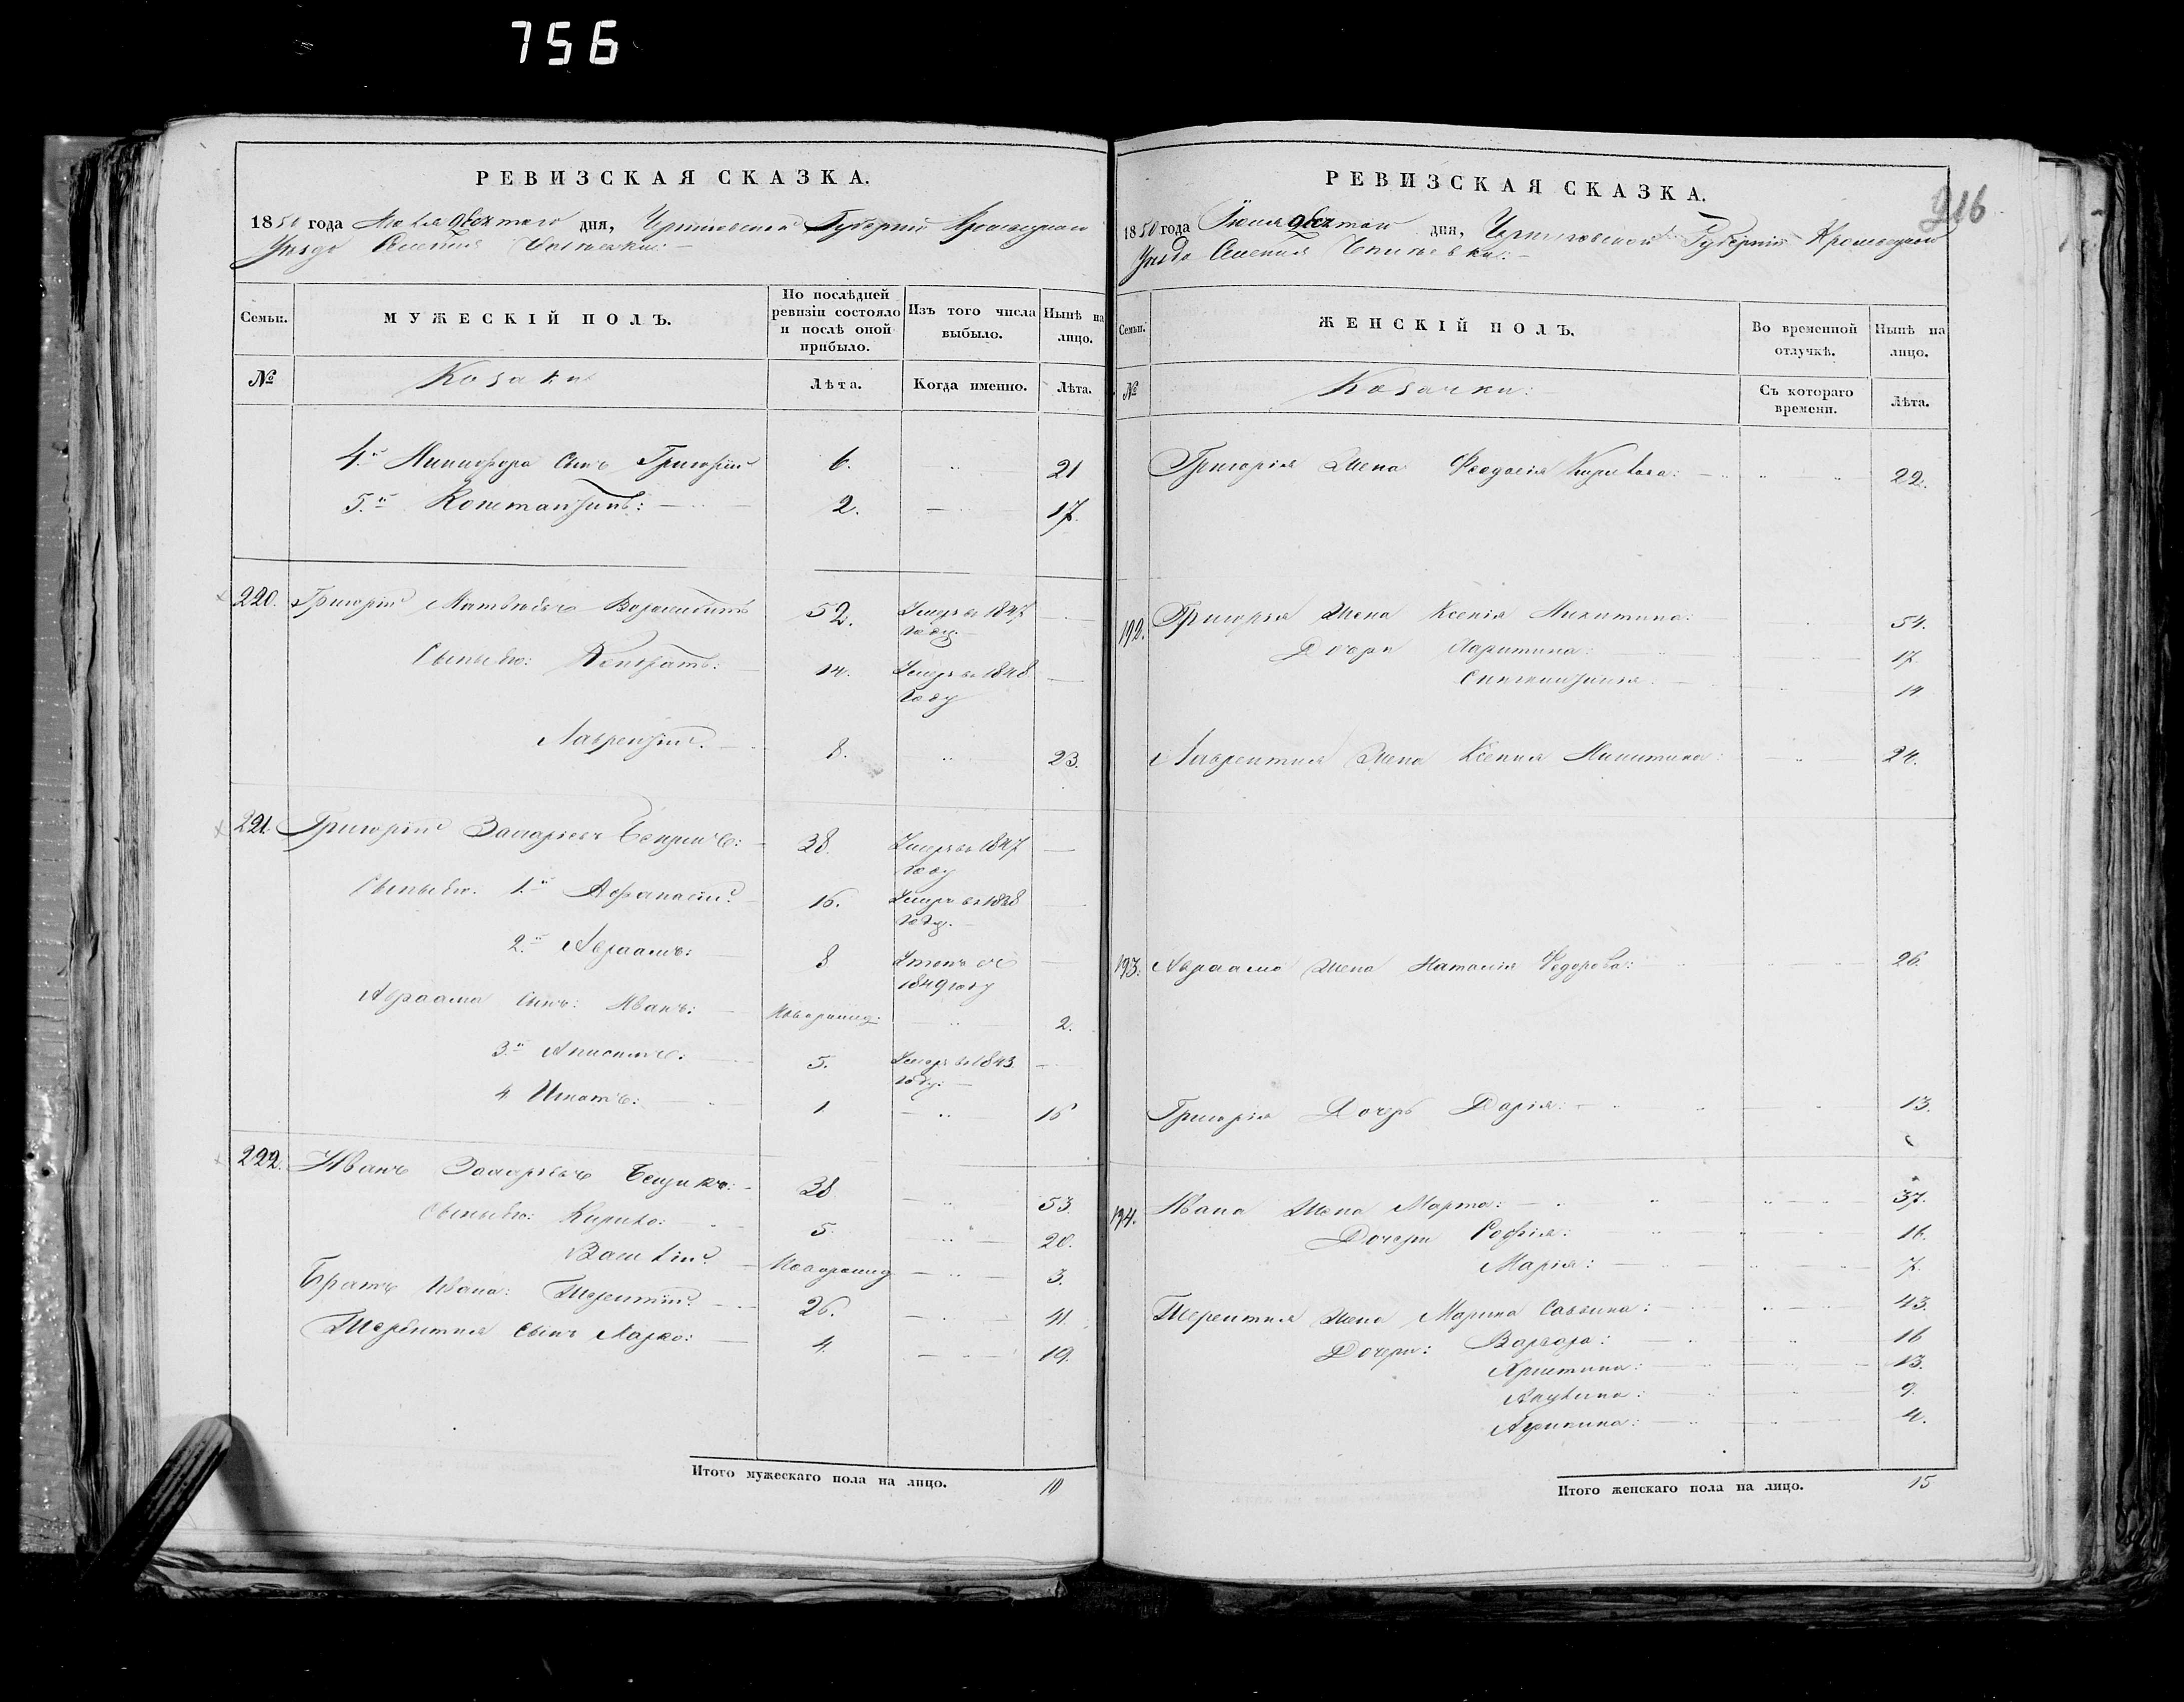 756
РЕВИЗСКАЯ СКАЗКА.
1850 года дня, Черниговской Губерніи
Уезда Селенія
Семьи.
МУЖЕСКІЙ ПОЛЪ.
По послѣдней ревизіи состояло и послѣ оной прибыло.
Изъ того числа выбыло.
Нынѣ на лицо.
№
Козаки
Лѣта.
Когда именно.
Лѣта.
4.й Никифора Сынъ Григорій 6. 21
5.й Константинъ: 2. 17.
220. Григорій Матвѣевъ 52. Умеръ въ 1847 году.
Сыновья: 14. Умеръ въ 1848 году
Лаврентій. 8. 23.
221. Григорій Захарьевъ 38. Умеръ въ 1847 году
Сыновья. 1.й Афанасій 16. Умеръ въ году.
2.й Авраамъ: 8 1849 году
Авраама Сынъ: Иванъ: Новорожд: 2.
3.й 5. Умеръ въ 1843 году.
4 Игнатъ: 1 16
222. Иванъ Захарьевъ 38 53.
Сыновья: Кирило: 5. 20.
Василій Новорожд 3.
Братъ Ивана: Терентій 26. 41.
Терентия Сынъ Марко: 4. 19.
Итого мужескаго пола на лицо. 10
РЕВИЗСКАЯ СКАЗКА.
216
1850 года Июля дня, Черниговской Губерніи Кролевецкаго
Уезда Селенія
Семьи.
ЖЕНСКІЙ ПОЛЪ.
Во временной отлучкѣ.
Нынѣ на лицо.
№
Козачки:
Съ котораго времени.
Лѣта.
Григорія Жена Феодосія Кирилова: 22.
192. Григорья Жена Ксенія Никитина: 54.
Дочери Харитина: 17.
14
Лаврентия Жена Ксения Никитина: 24.
193. Авраама Жена Наталія Федорова: 26.
Григорія Дочерь Дарія: 13.
194. Ивана Жена Марта: 37.
Дочери Софія: 16.
Марія: 7.
Терентия Жена Марина Саввина: 43.
Дочери: Варвара: 16
Христина: 13.
Акулина: 9.
Агрипина: 4.
Итого женскаго пола на лицо. 15